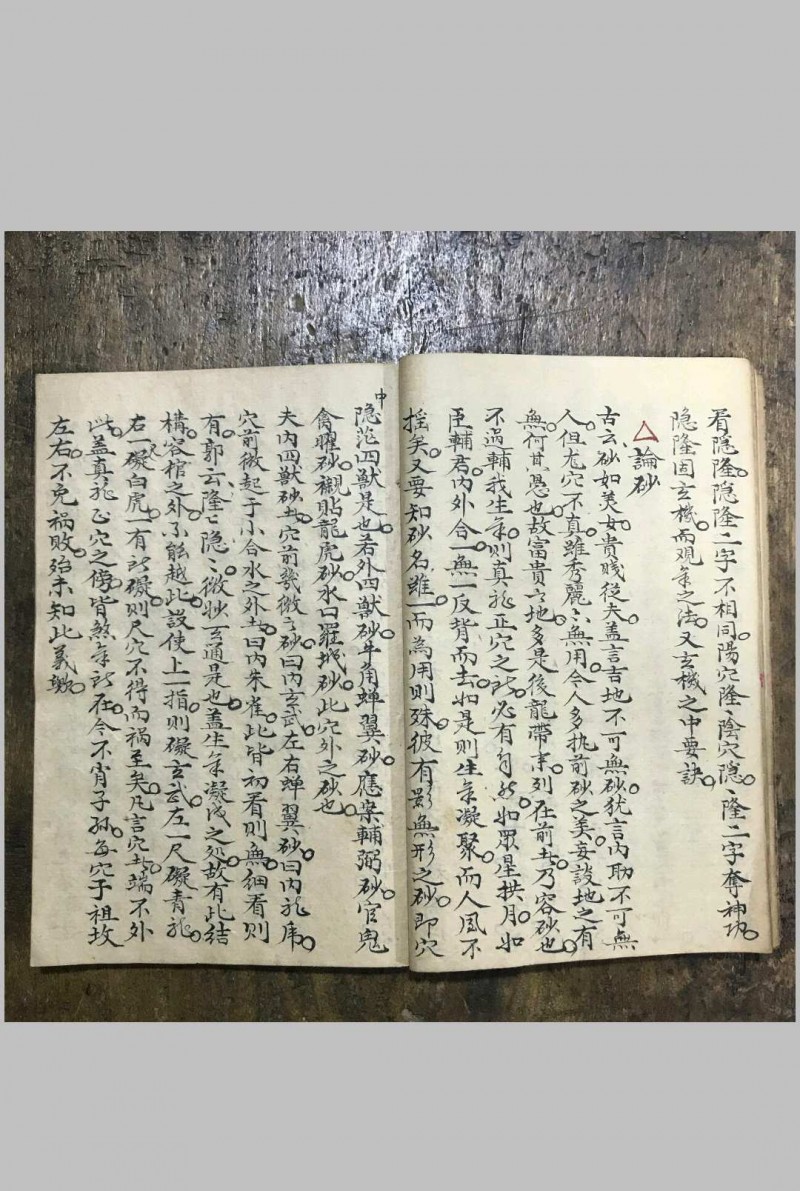 看隱隆。隱隆二字不相同。陽穴隆〻陰穴隱〻。隆二字奪神功。
隐隆固玄機。而观氣之法。又玄機之中要訣。
△論砂
古云。砂如美女。貴賤從夫。盖言吉地不可無砂。犹言内助不可無
人。但尨穴不真。雖秀麗〻無用。今人多执前砂之美。妄談地之有
無。何其愚也。故富貴之地。多是後龍帶来。列在前者。乃容砂也。
不過輔我生氣。則真龙正穴之所。必有自然。如眾星拱月。如
臣輔君。内外合一。無一反背而去。如是則生氣凝聚。而人風不
摇矣。又要知砂名雖一。而為用則殊。彼有影無形之砂。即穴
中
隐茫四獸是也。若外四獸砂。牛角蝉翼砂。應案輔弼砂。官鬼
禽曜砂。襯貼龍虎砂。水口羅城砂。此穴外之砂也。
夫内四獸砂者。穴前幾微之砂。曰内玄武。左右蝉翼砂。曰内龙虎。
穴前微起于小合水之外者。曰内朱雀。此皆初看則無。細看則
有。郭云。隆〻隐〻。微妙一玄通是也。盖生氣凝成之処。故有此结
構。容棺之外。不能越此。設使上一指。則礙玄武。左一尺礙青龙。
右一尺礙白虎。一有所礙。則尺穴不得。而禍至矣。凡言穴者。端不外
此。盖真龙正穴之傍。皆煞氣所在。今不肖子孫。每穴于祖坟
左右。不免禍敗。殆未知此義歟。